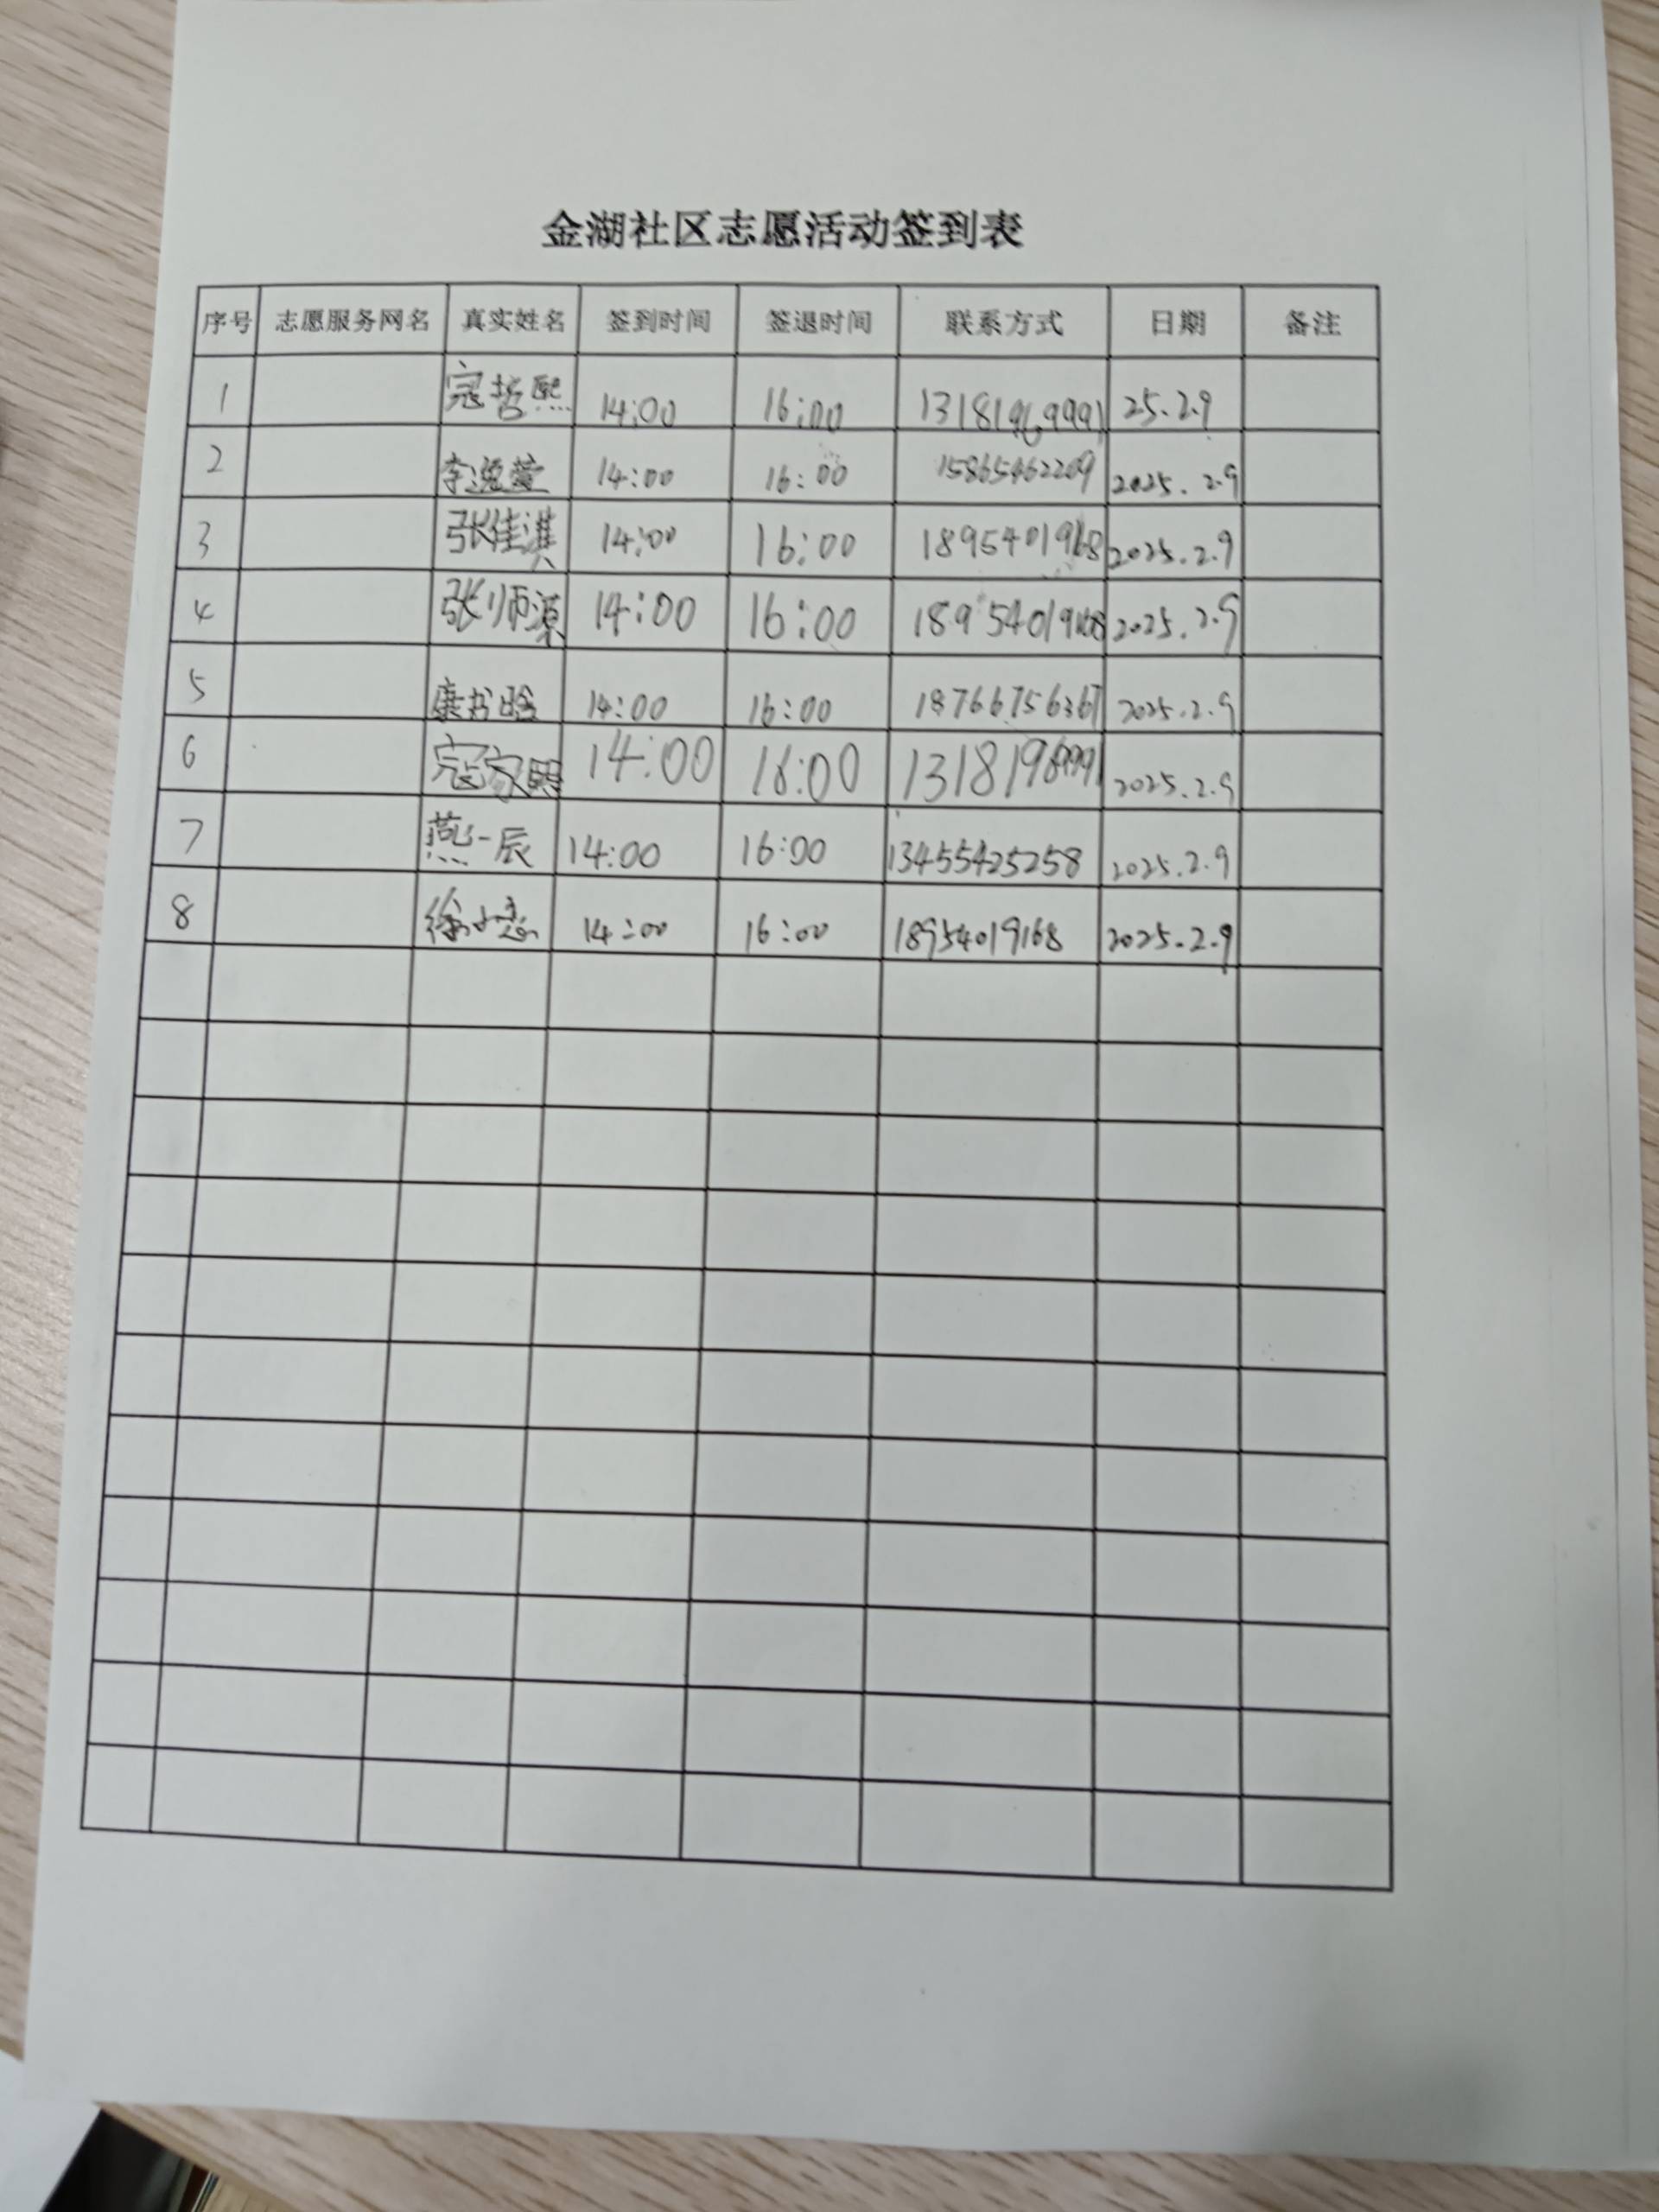 金湖社区志愿活动签到表
序号 志愿服务网名 真实姓名 签到时间 签退时间 联系方式 日期 备注
1 寇哲熙 14:00 16:00 13181969991 25.2.9
2 李逸萱 14:00 16:00 15865462209 2025.2.9
3 张佳淇 14:00 16:00 18954019168 2025.2.9
4 张师源 14:00 16:00 18954019168 2025.2.9
5 康书晗 14:00 16:00 18766756367 2025.2.9
6 寇家熙 14:00 16:00 13181969991 2025.2.9
7 燕一辰 14:00 16:00 13455425258 2025.2.9
8 徐 14:00 16:00 18954019168 2025.2.9